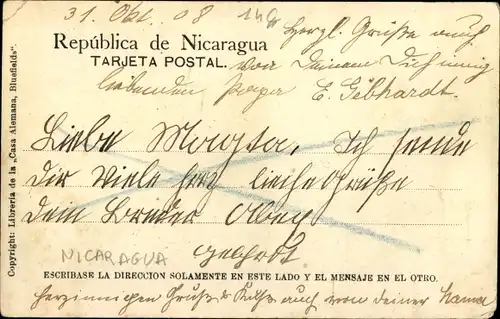 31. Okt. 08
Herzl. Grüße auch
República de Nicaragua
von Deinem Dich innig
TARJETA POSTAL.
liebenden Papa
E. Gebhardt.
Liebe Magda, Ich sende
dir viele herzliche Grüße
dein Bruder
NICARAGUA
ESCRIBASE LA DIRECCION SOLAMENTE EN ESTE LADO Y EL MENSAJE EN EL OTRO.
herzinnigen Gruß & Kuß auch von deiner Mama
Copyright: Libreria de la „Casa Alemana, Bluefields“.